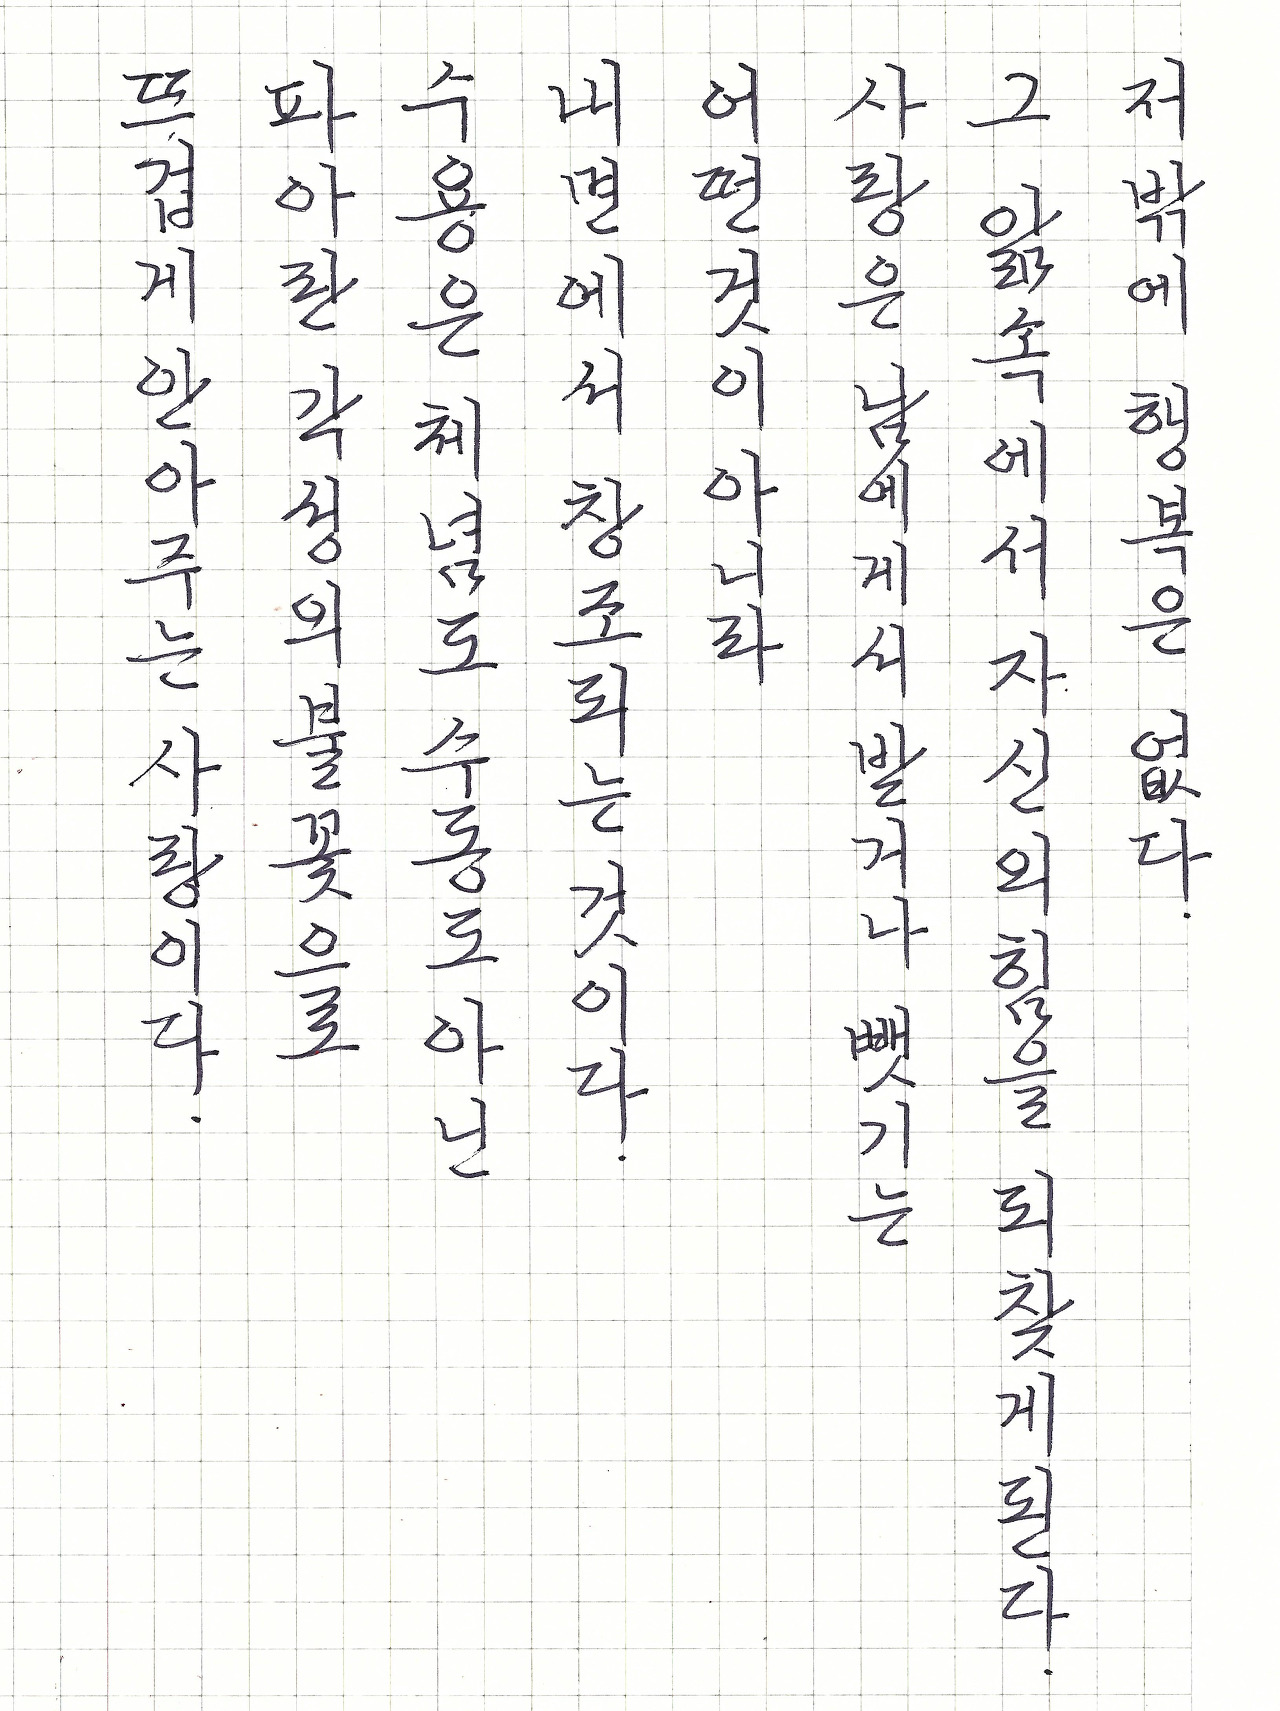 저 밖에 행복은 없다.
그 앎속에서 자신의 힘을 되찾게 된다.
사랑은 남에게서 발거나 뺏기는
어떤것이 아니라
내면에서 창조되는 것이다.
수용은 체념도 수동도 아닌
파아란 각성의 불꽃으로
뜨겁게 안아주는 사랑이다.